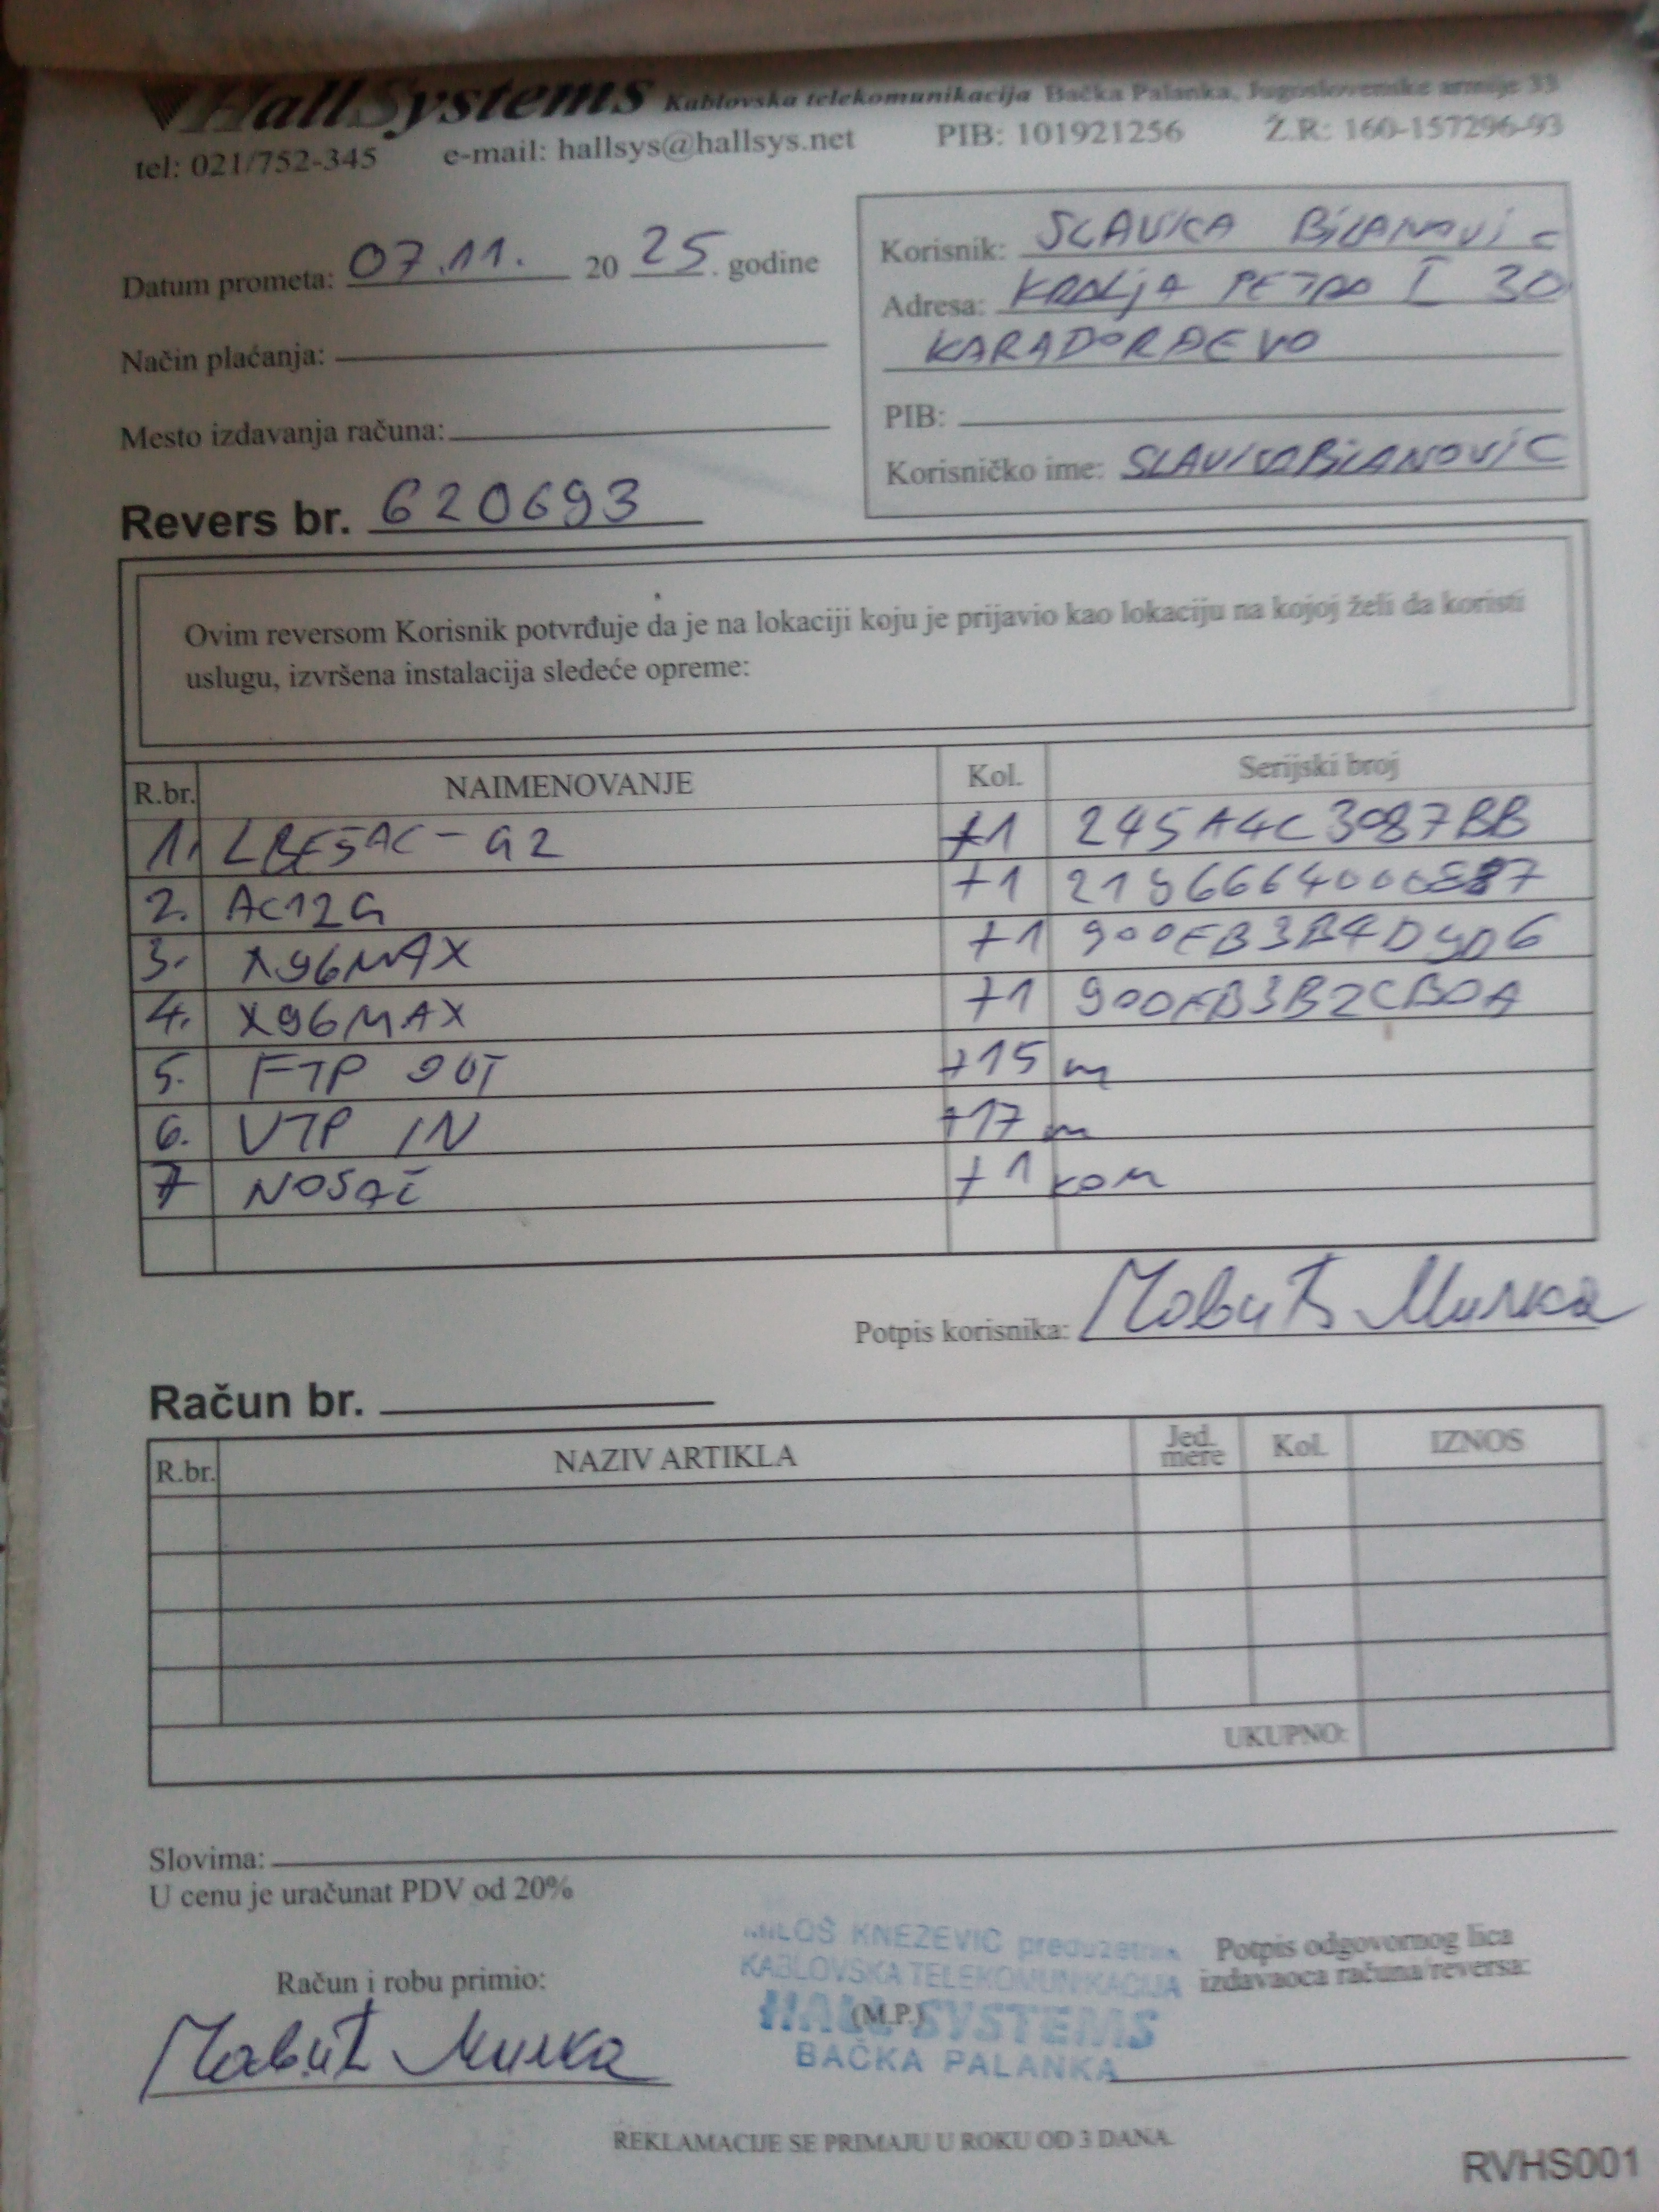 HallSystems Kablovska telekomunikacija Bačka Palanka, Jugoslovenske armije 33
tel: 021/752-345 e-mail: hallsys@hallsys.net PIB: 101921256 Ž.R: 160-157296-93
Datum prometa: 07.11. 20 25. godine
Način plaćanja:
Mesto izdavanja računa:
Korisnik: SLAVKA BILANOVIC
Adresa: KRALJA PETRA I 30
KARAĐORĐEVO
PIB:
Korisničko ime: SLAVKABILANOVIC
Revers br. 620693
Ovim reversom Korisnik potvrđuje da je na lokaciji koju je prijavio kao lokaciju na kojoj želi da koristi
uslugu, izvršena instalacija sledeće opreme:
R.br. NAIMENOVANJE Kol. Serijski broj
1. LBE5AC-G2 +1 245A4C3087BB
2. AC12G +1
3. X96MAX +1 900EB3B4D9D6
4. X96MAX +1 900EB3B2CB0A
5. FTP OUT +15 m
6. UTP IN +17 m
7 NOSAČ +1 kom
Potpis korisnika:
Račun br.
R.br. NAZIV ARTIKLA Jed. mere Kol. IZNOS
UKUPNO:
Slovima:
U cenu je uračunat PDV od 20%
Račun i robu primio:
MILOŠ KNEŽEVIĆ preduzetnik
KABLOVSKA TELEKOMUNIKACIJA
HALL SYSTEMS
(M.P.)
BAČKA PALANKA
Potpis odgovornog lica
izdavaoca računa/reversa:
REKLAMACIJE SE PRIMAJU U ROKU OD 3 DANA.
RVHS001